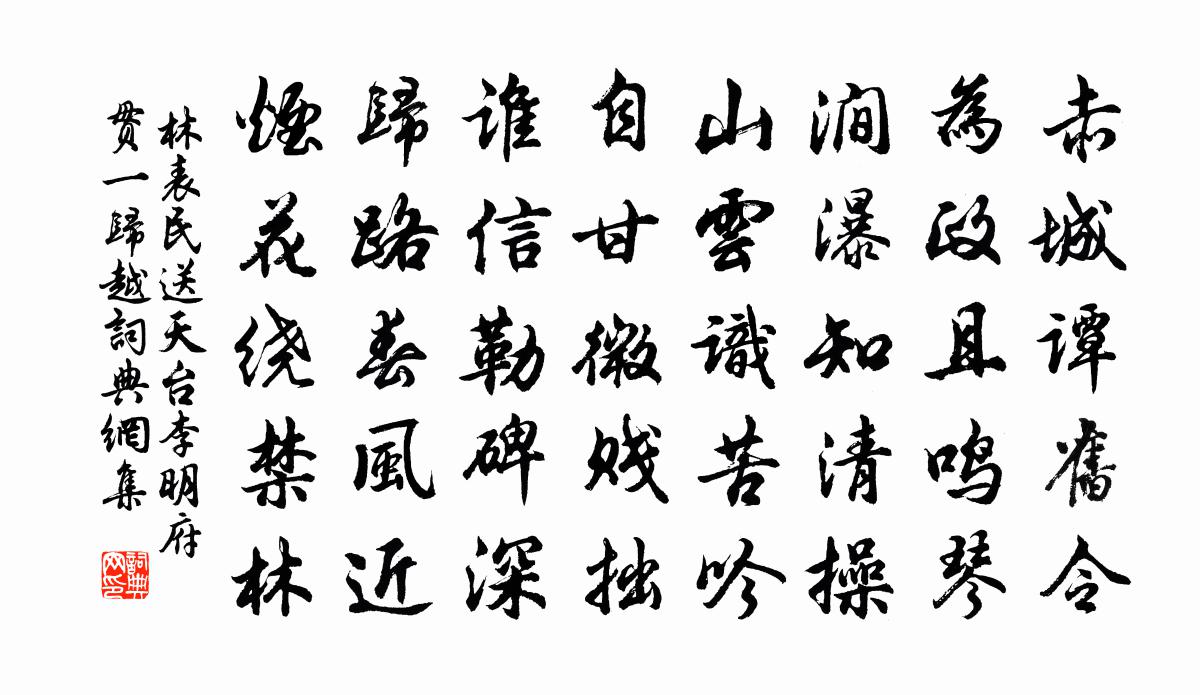 赤城谭舊令
為政且鸣琴
涧瀑知清操
山雲識苦吟
自甘微贱拙
谁信勒碑深
歸路春風近
煙花绕禁林
林表民送天台李明府
贯一歸越詞典網集
詞典网印